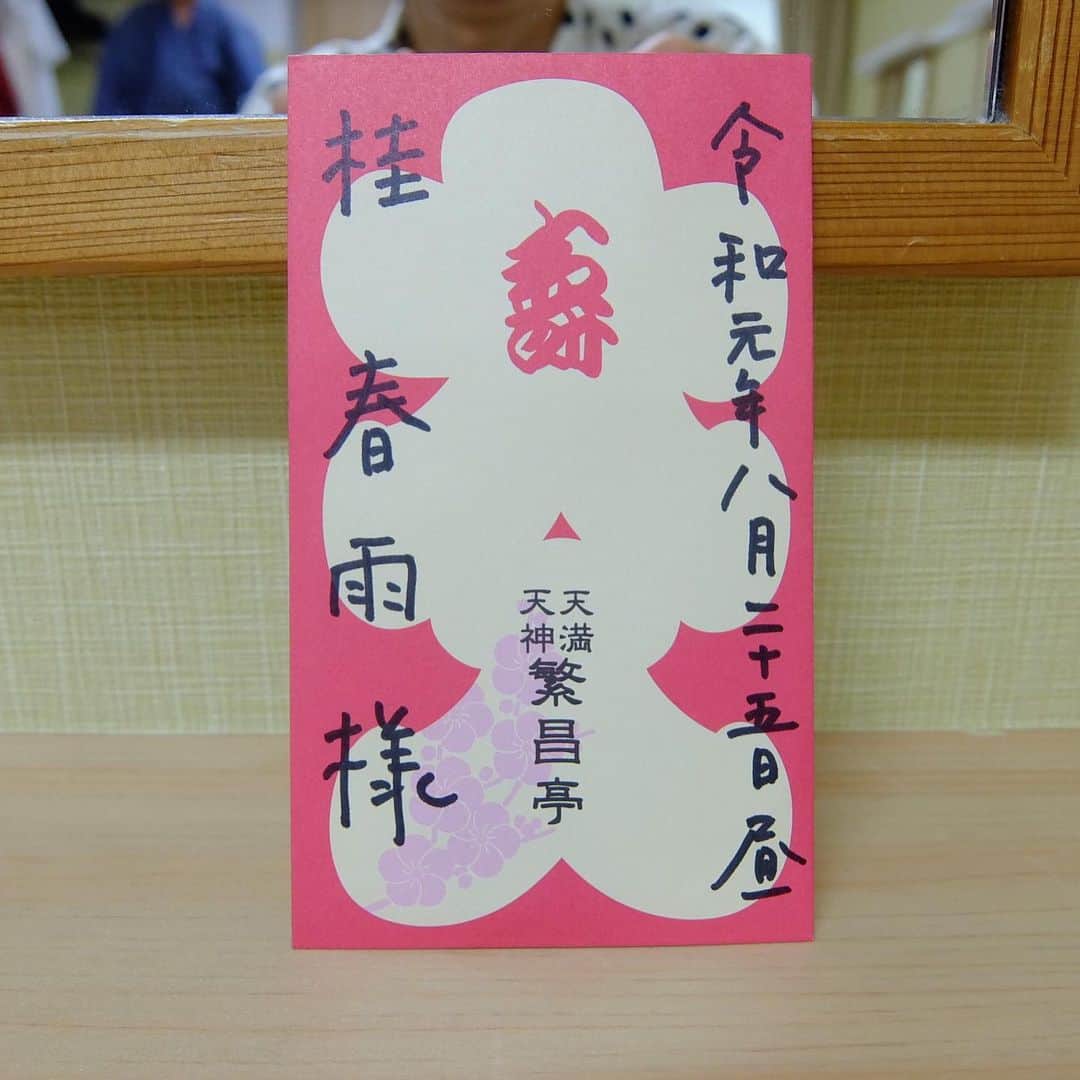 令和元年八月二十五日昼
天満
天神
繁昌亭
桂春雨様